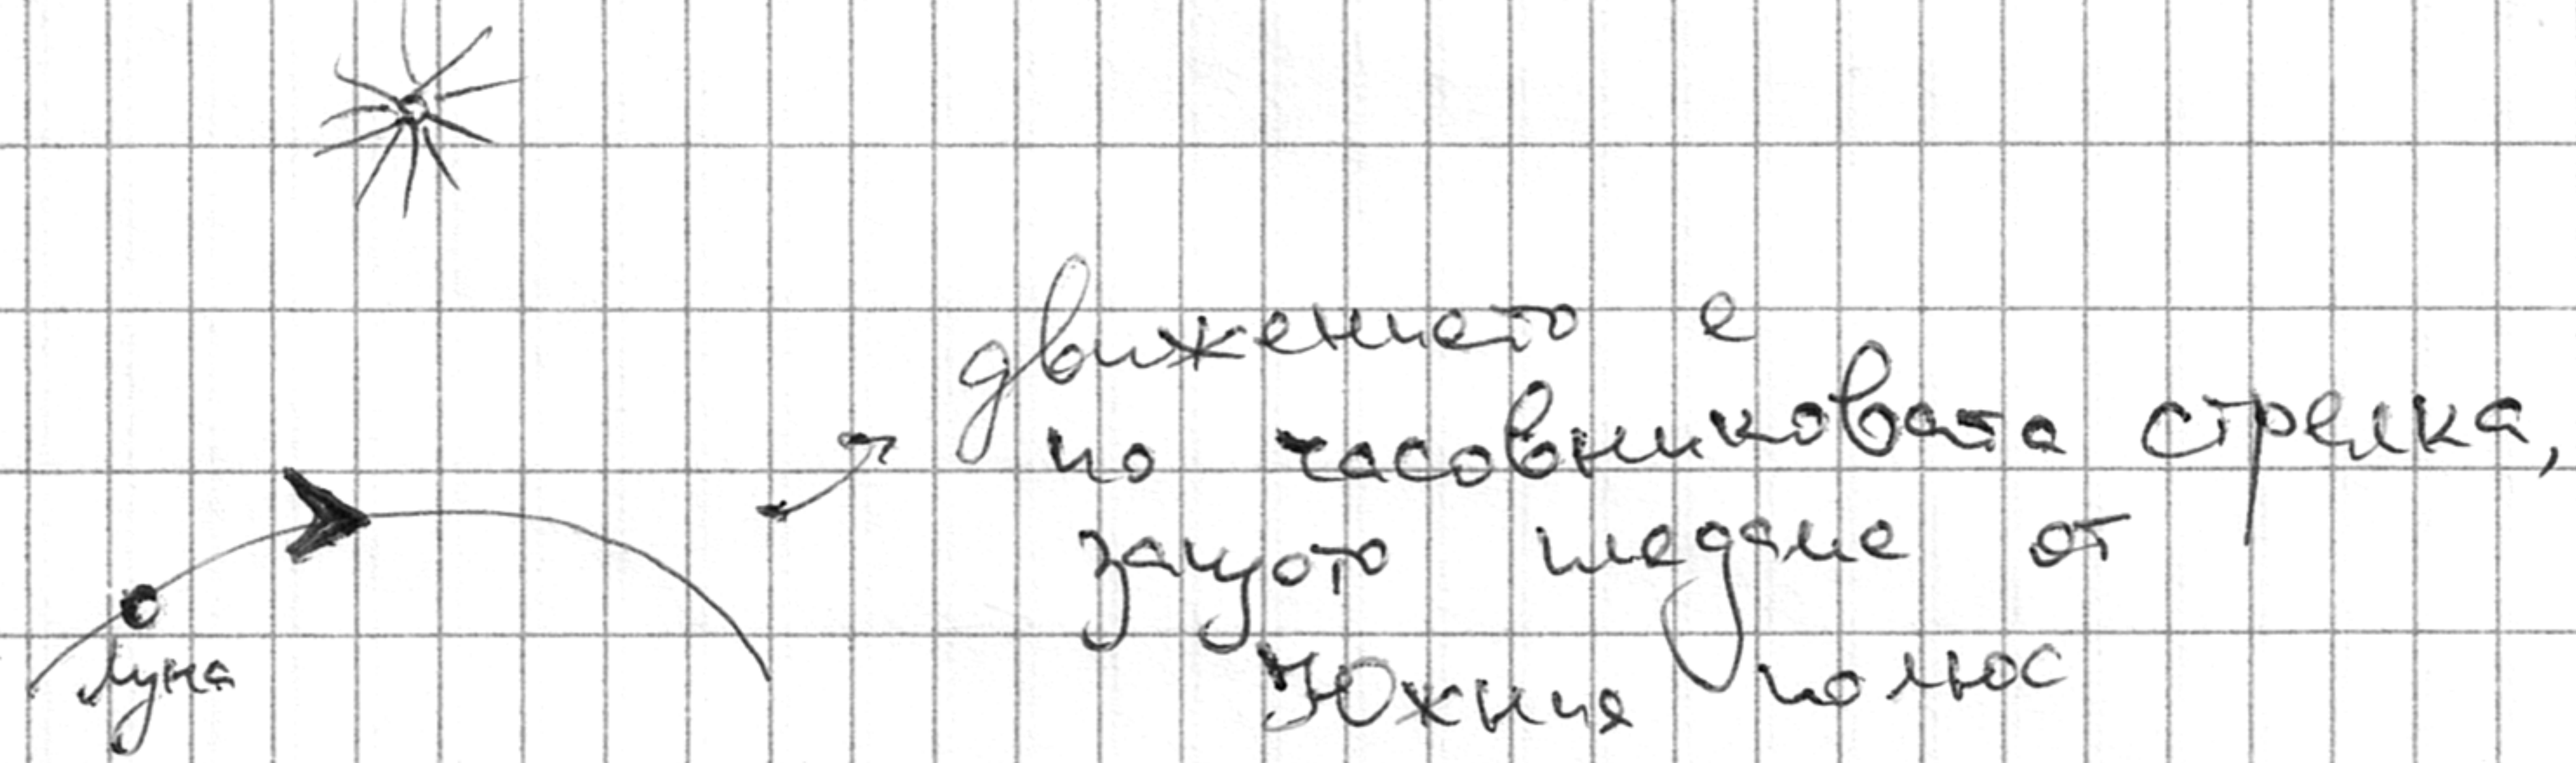 движението е
по часовниковата стрелка,
защото гледаме от
Южния полюс
Луна